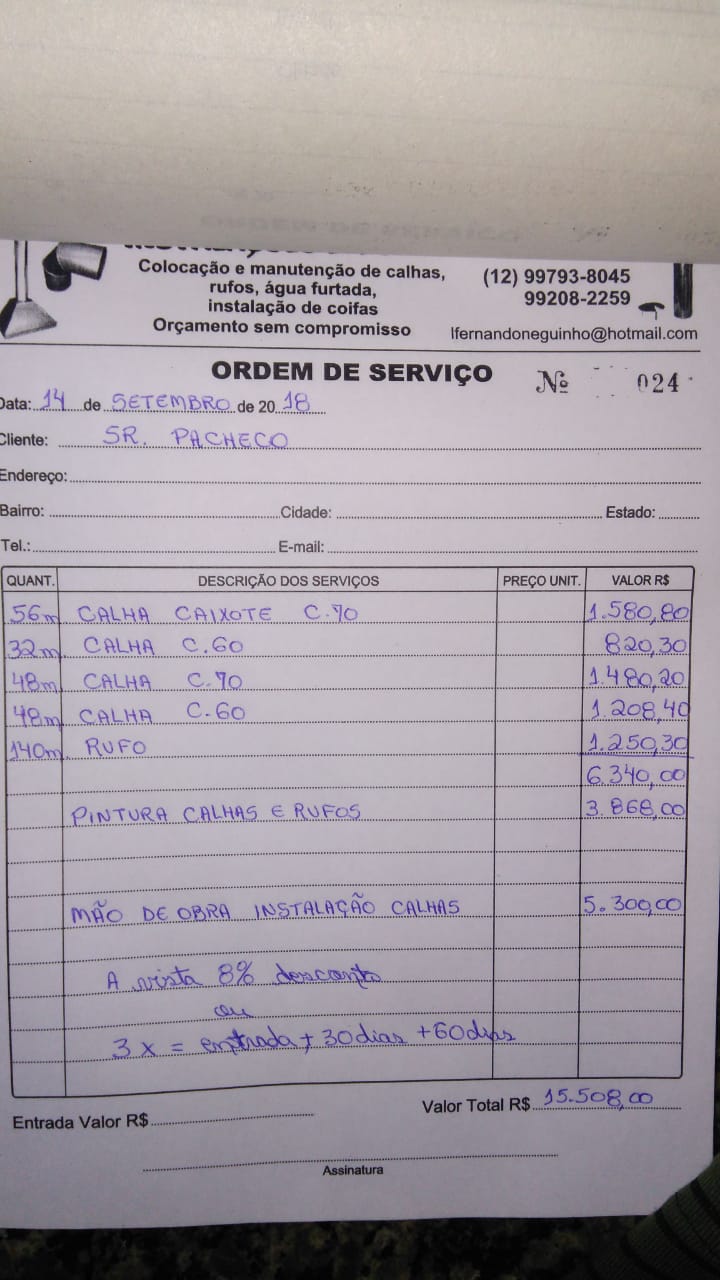 Colocação e manutenção de calhas,
rufos, água furtada,
instalação de coifas
Orçamento sem compromisso
(12) 99793-8045
99208-2259
lfernandoneguinho@hotmail.com
ORDEM DE SERVIÇO Nº 024
Data: 14 de SETEMBRO de 20 18
Cliente: SR. PACHECO
Endereço:
Bairro: Cidade: Estado:
Tel.: E-mail:
QUANT. DESCRIÇÃO DOS SERVIÇOS PREÇO UNIT. VALOR R$
56m CALHA CAIXOTE C.70 1.580,80
32m CALHA C.60 820,30
48m CALHA C.70 1.480,20
48m CALHA C.60 1.208,40
140m RUFO 1.250,30
6.340,00
PINTURA CALHAS E RUFOS 3.868,00
MÃO DE OBRA INSTALAÇÃO CALHAS 5.300,00
A vista 8% desconto
ou
3 x = entrada + 30 dias + 60 dias
Entrada Valor R$ Valor Total R$ 15.508,00
Assinatura